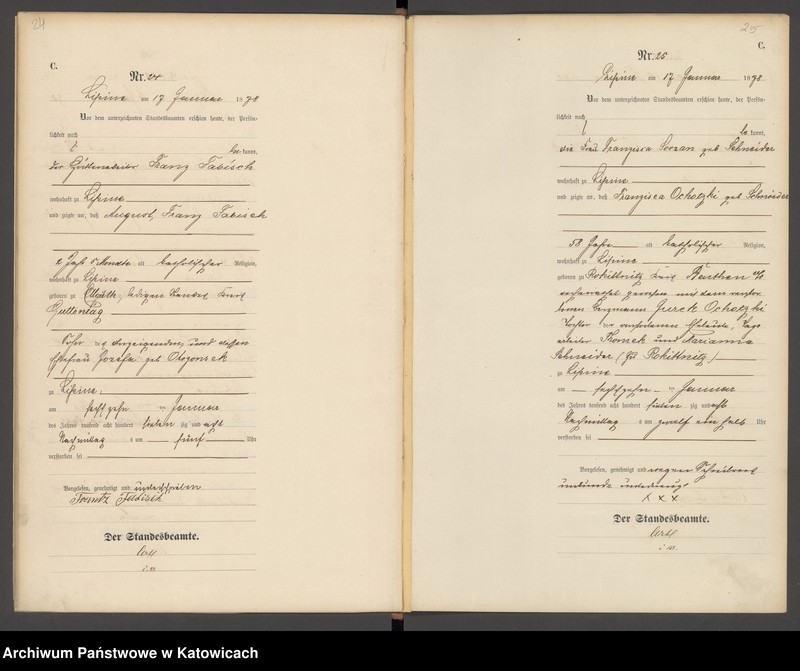 24
C.
Nr. 24
Lipine am 17 Januar 1878
Vor dem unterzeichneten Standesbeamten erschien heute, der Persön-
lichkeit nach
be kannt,
der Hüttenarbeiter Franz Fabisch
wohnhaft zu Lipine
und zeigte an, daß August, Franz Fabisch
alt katholischer Religion,
wohnhaft zu Lipine
geboren zu
Guttentag
Sohn des Anzeigenden und dessen
Ehefrau Josefa geb
zu Lipine
am sechszehn ten Januar
des Jahres tausend acht hundert sieben zig und acht
Nachmittag s um fünf Uhr
verstorben sei
Vorgelesen, genehmigt und unterschrieben
Der Standesbeamte.
25
C.
Nr. 25
Lipine am 17 Januar 1878
Vor dem unterzeichneten Standesbeamten erschien heute, der Persön-
lichkeit nach
be kannt,
die Frau Franzisca geb Schneider
wohnhaft zu Lipine
und zeigte an, daß Franzisca Ocholzki geb Schneider
58 Jahre alt katholischer Religion,
wohnhaft zu Lipine
geboren zu Rokittnitz Kreis Beuthen O/S.
verheirathet gewesen mit dem verstor
benen Bergmann Jurek Ocholzki
Tochter der verstorbenen Eheleute, Tage
arbeiter Thomek und Marianna
Schneider (zu Rokittnitz)
zu Lipine
am sechszehn ten Januar
des Jahres tausend acht hundert sieben zig und acht
Nachmittag s um zwölf ein halb Uhr
verstorben sei
Vorgelesen, genehmigt und wegen Schreibens
unkunde unterkreuzt
x x x
Der Standesbeamte.
Archiwum Państwowe w Katowicach